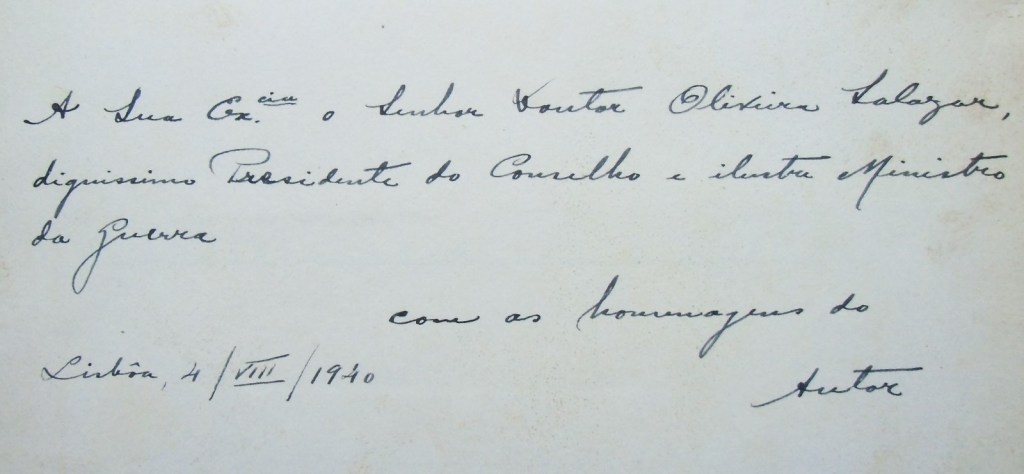 A Sua Ex.cia o Senhor Doutor Oliveira Salazar,
digníssimo Presidente do Conselho e ilustre Ministro
da Guerra
com as homenagens do
Lisbôa, 4/VIII/1940
Autor